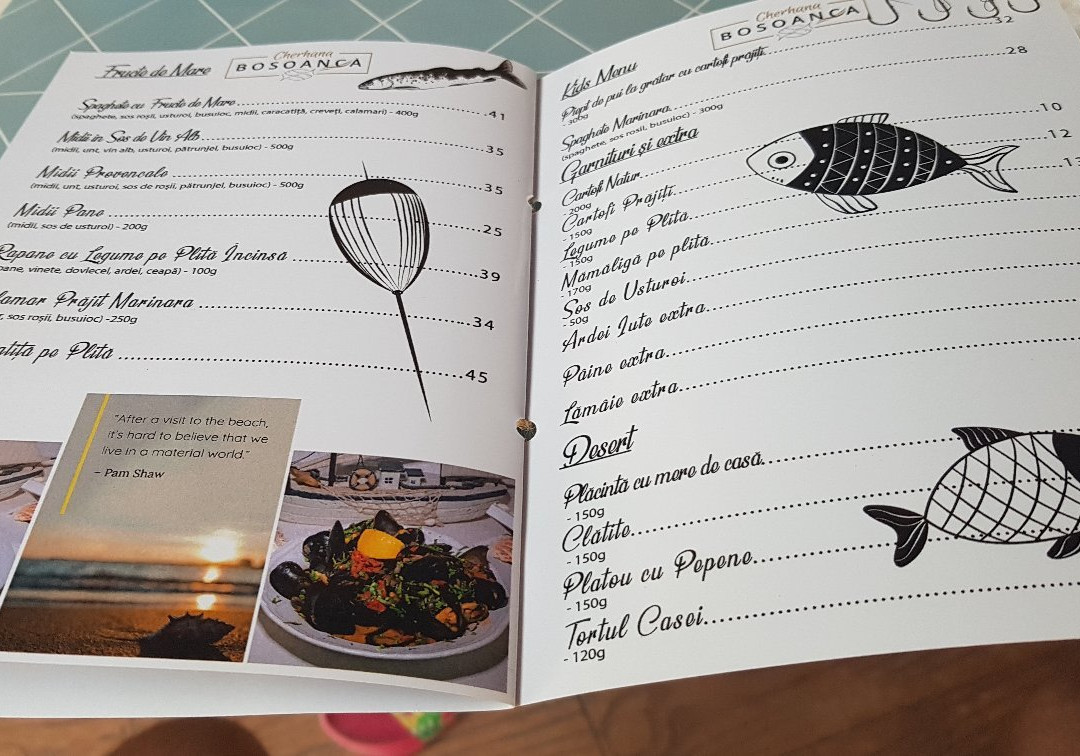 Cherhana
BOSOANCA
Fructe de Mare
Spaghete cu Fructe de Mare........41
(spaghete, sos rosii, usturoi, busuioc, midii, caracatiță, creveți, calamari) - 400g
Midii in Sos de Vin Alb........35
(midii, unt, vin alb, usturoi, pătrunjel, busuioc) - 500g
Midii Provencale........35
(midii, unt, usturoi, sos de roșii, pătrunjel, busuioc) - 500g
Midii Pane........25
(midii, sos de usturoi) - 200g
Rapane cu Legume pe Plită Încinsa........39
pane, vinete, dovlecel, ardei, ceapă) - 100g
lamar Prăjit Marinara........34
, sos roșii, busuioc) -250g
atiță pe Plită........45
"After a visit to the beach,
it's hard to believe that we
live in a material world."
– Pam Shaw
Cherhana
BOSOANCA
Kids Menu
Piept de pui la grătar cu cartofi prăjiți........32
- 300g
Spaghete Marinara........28
(spaghete, sos rosii, busuioc) - 300g
Garnituri și extra
Cartofi Natur........10
- 200g
Cartofi Prăjiți........12
- 150g
Legume pe Plită
- 150g
Mămăligă pe plită
- 170g
Sos de Usturoi
- 50g
Ardei Iute extra
Pâine extra
Lămâie extra
Desert
Plăcintă cu mere de casă
- 150g
Clătite
- 150g
Platou cu Pepene
- 150g
Tortul Casei
- 120g